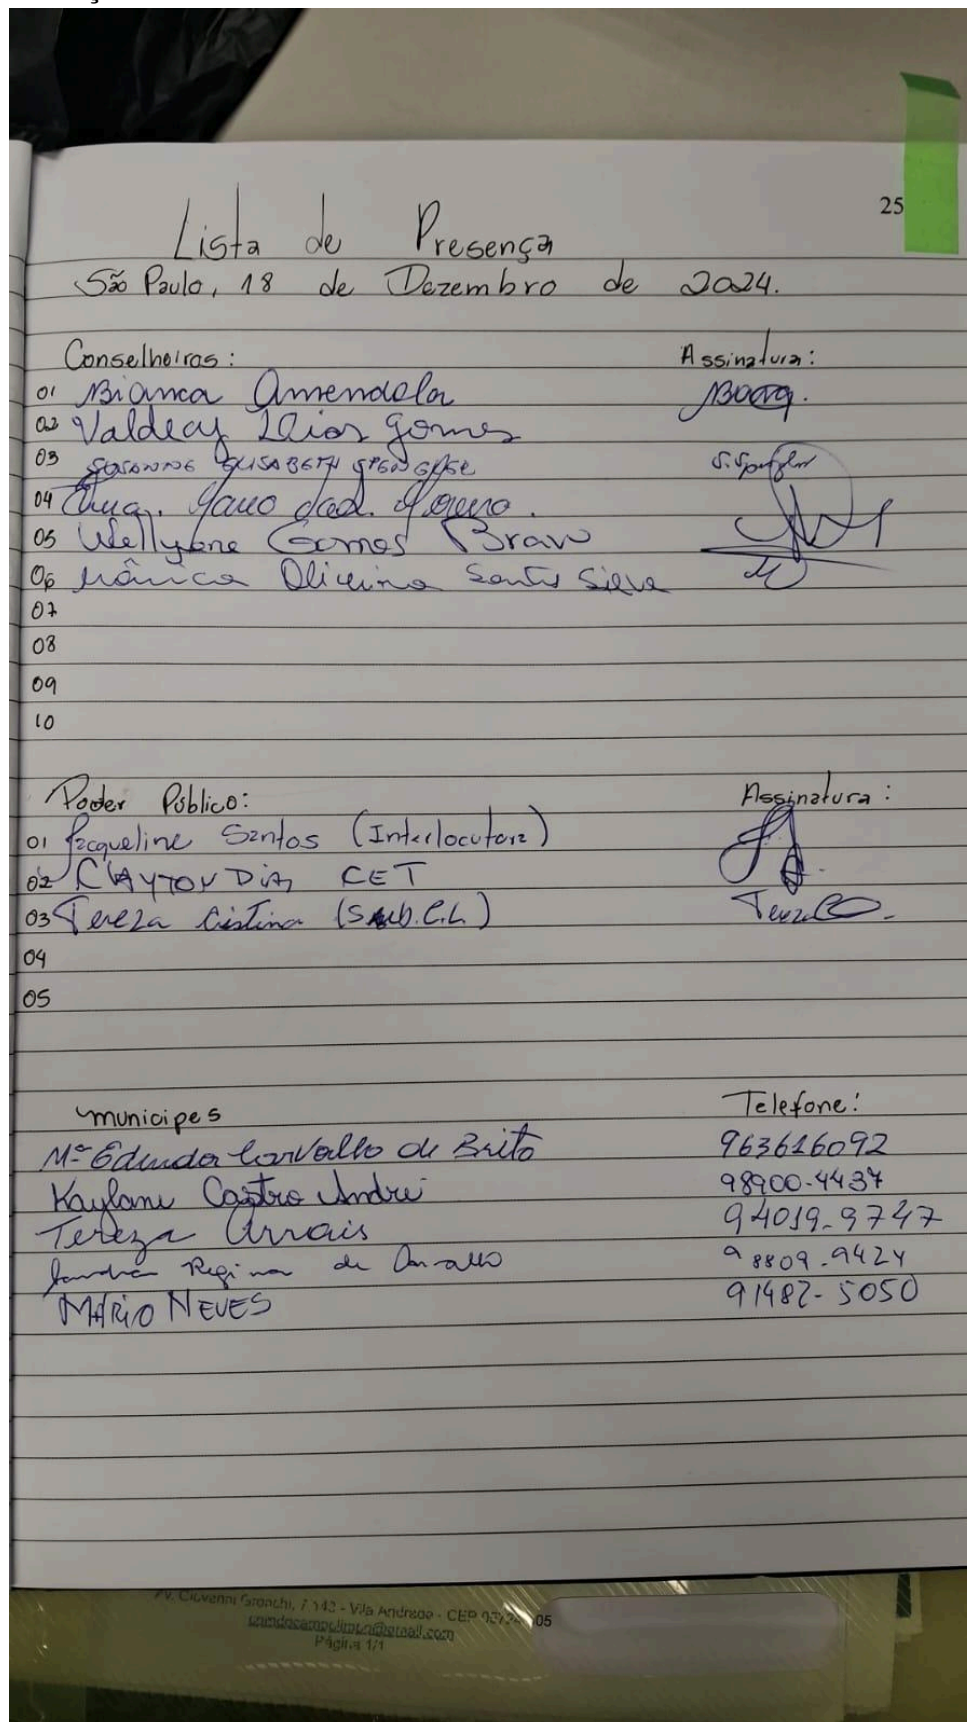 25
Lista de Presença
São Paulo, 18 de Dezembro de 2024.
Conselheiros: Assinatura:
01 Bianca Amendola
02 Valdecy Dias Gomes
03 SUSANNE ELISABETH
04
05 Wellyene Gomes Bravo
06 Mônica Oliveira Santos Silva
07
08
09
10
Poder Público: Assinatura:
01 Jacqueline Santos (Interlocutora)
02 CLAYTON DIAS CET
03 Tereza Cristina (Sub.C.L)
04
05
municipes Telefone:
Mª Eduarda Carvalho de Brito 963616092
Kaylane Castro Andre 98900-4437
Tereza Arrais 94019-9747
Sandra Regina de Carvalho 98809-9424
MÁRIO NEVES 91482-5050
Av. Giovanni Gronchi, 7143 - Vila Andrade - CEP 05
Página 1/1